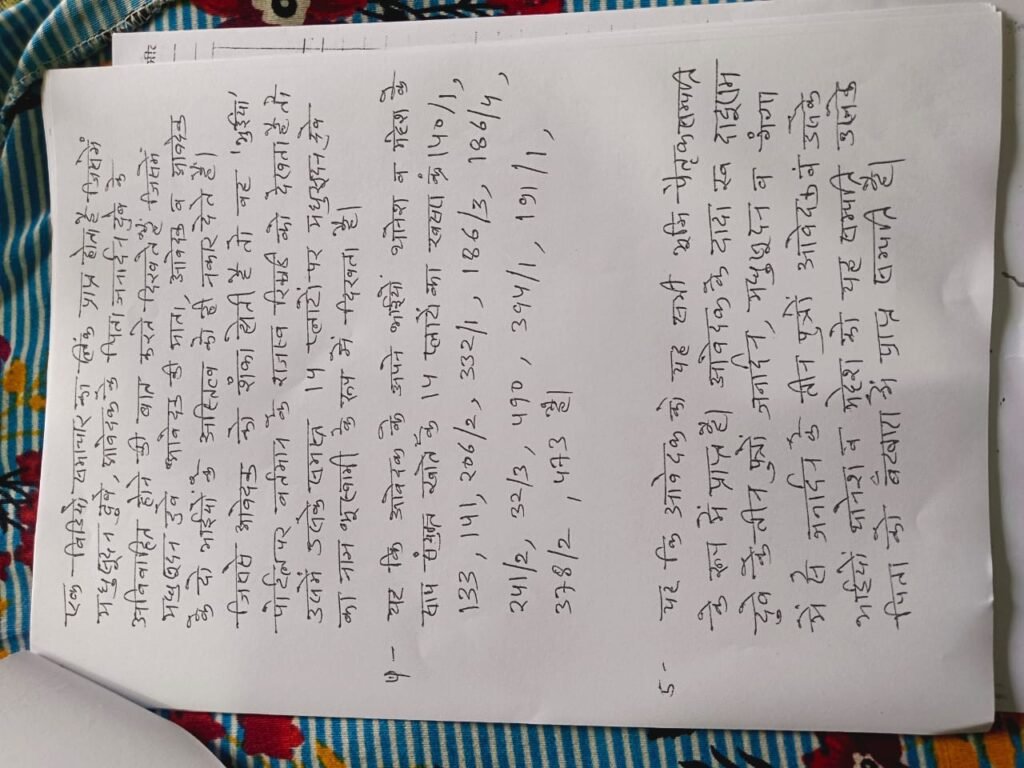 एक वंशीय समाचार का हाल ही में प्राप्त होता है जिसमें
मधुसूदन दुबे, आवेदक के पिता जनार्दन दुबे के
अविवाहित होने की बात करते दिखते हैं जिसमें
मधुसूदन दुबे आवेदक ही नाम, आवेदक व आवेदक
के दो भाइयों के अस्तित्व को ही नकार देते हैं।
जिससे आवेदक को शंका होती है तो वह 'भुइयां'
पोर्टल पर वर्तमान के राजस्व रिकार्ड को देखता है तो
उसमें उनके समस्त 14 प्लाटों पर मधुसूदन दुबे
का नाम भूस्वामी के रूप में दिखता है।
4 - यह कि आवेदक के अपने भाइयों योगेश व महेश के
साथ संयुक्त खाते के 14 प्लाटों का खसरा क्रं 140/1,
133, 141, 206/2, 332/1, 186/3, 186/4,
241/2, 32/3, 470, 394/1, 191/1,
378/2, 473 है।
5 - यह कि आवेदक को यह सारी सम्पत्ति पैतृक सम्पत्ति
के रूप में प्राप्त है। आवेदक के दादा स्व राजाराम
दुबे के तीन पुत्रों जनार्दन, मधुसूदन व
में से जनार्दन के तीन पुत्रों आवेदक एवं उनके
भाइयों योगेश व महेश को यह सम्पत्ति उनके
पिता को बँटवारा में प्राप्त सम्पत्ति है।